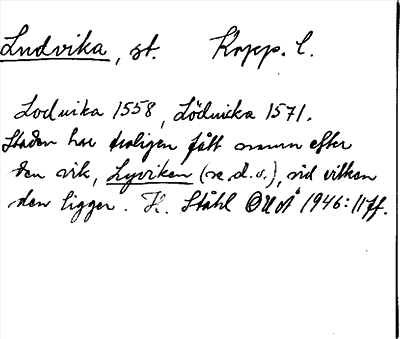 Ludvika, st. Kopp. l.
Lodvika 1558, Lödvicka 1571.
Staden har troligen fått namn efter
den vik, Lyviken (se d.o.), vid vilken
den ligger. H. Ståhl OUÅ 1946: 11 ff.